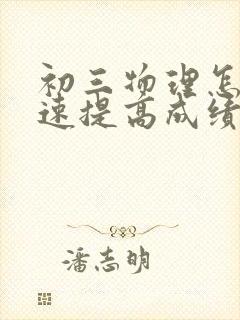 初三物理怎
速提高成绩
潘志明